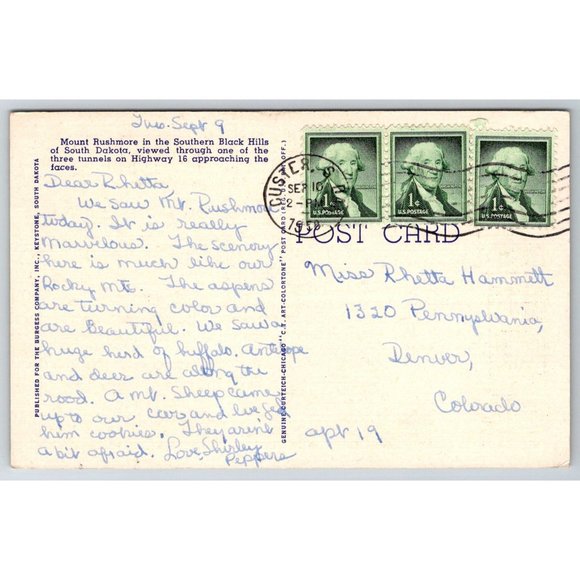 Tues. Sept 9
Mount Rushmore in the Southern Black Hills
of South Dakota, viewed through one of the
three tunnels on Highway 16 approaching the
faces.
Dear Rhetta
We saw Mt. Rushmore
today. It is really
Marvelous. The scenery
here is much like our
Rocky Mts. The aspens
are turning color and
are beautiful. We saw a
huge herd of buffalo. Antelope
and deer are along the
road. A mt. Sheep came
up to our car and we fed
him cookies. They aren't
a bit afraid. Love, Shirley
Peppers
PUBLISHED FOR THE BURGESS COMPANY, INC., KEYSTONE, SOUTH DAKOTA
GENUINE CURTEICH-CHICAGO "C.T. ART-COLORTONE" POST CARD (REG. U.S. PAT. OFF.)
CUSTER, S.
SEP 10
2-PM
1958
1¢
U.S. POSTAGE
1¢
U.S. POSTAGE
1¢
U.S. POSTAGE
POST CARD
Miss Rhetta Hammett
1320 Pennsylvania,
Denver,
Colorado
apt 19